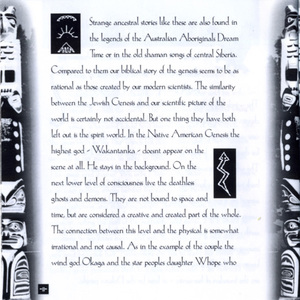 Strange ancestral stories like these are also found in
the legends of the Australian Aboriginals Dream
Time or in the old shaman songs of central Siberia.
Compared to them our biblical story of the genesis seems to be as
rational as those created by our modern scientists. The similarity
between the Jewish Genesis and our scientific picture of the
world is certainly not accidental. But one thing they have both
left out is the spirit world. In the Native American Genesis the
highest god - Wakantanka - doesnt appear on the
scene at all. He stays in the background. On the
next lower level of consciousness live the deathless
ghosts and demons. They are not bound to space and
time, but are considered a creative and created part of the whole.
The connection between this level and the physical is somewhat
irrational and not causal. As in the example of the couple the
wind god Okaga and the star peoples daughter Whope who